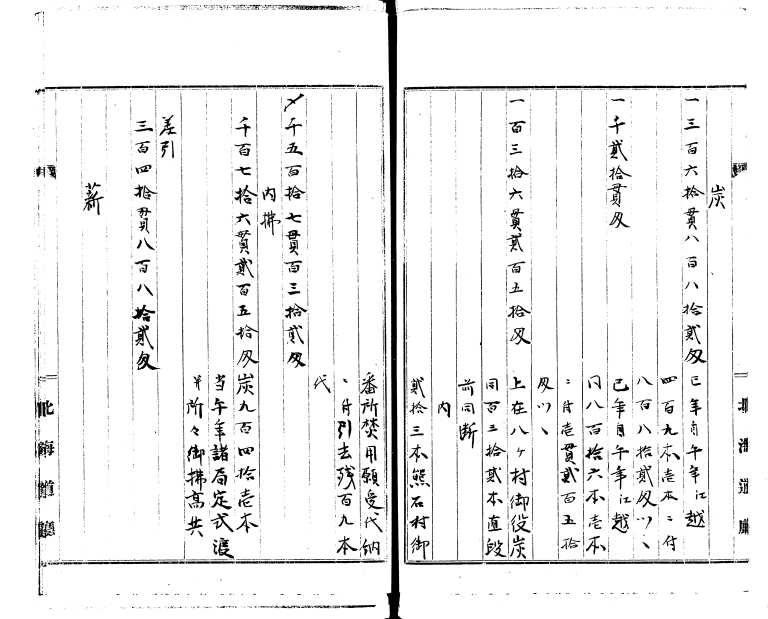 炭
一三百六拾貫八百八拾貳匁
巳年ゟ午年江越
四百九本壱本ニ付
八百八拾貳匁ツヽ
一千貳拾貫匁
巳年ゟ午年江越
同八百拾六本壱本
ニ付壱貫貳百五拾
匁ツヽ
一百三拾六貫貳百五拾匁
上在八ヶ村御役炭
同百三拾貳本直段
前同断
内
貳拾三本熊石村御
番所焚用願受代納
ニ付引去残百九本
代
〆千五百拾七貫百三拾貳匁
内拂
千百七拾六貫貳百五拾匁
炭九百四拾壱本
当午年諸局定式渡
并所々御拂高共
差引
三百四拾貫八百八拾貳匁
薪
北海道廳
北海道廳